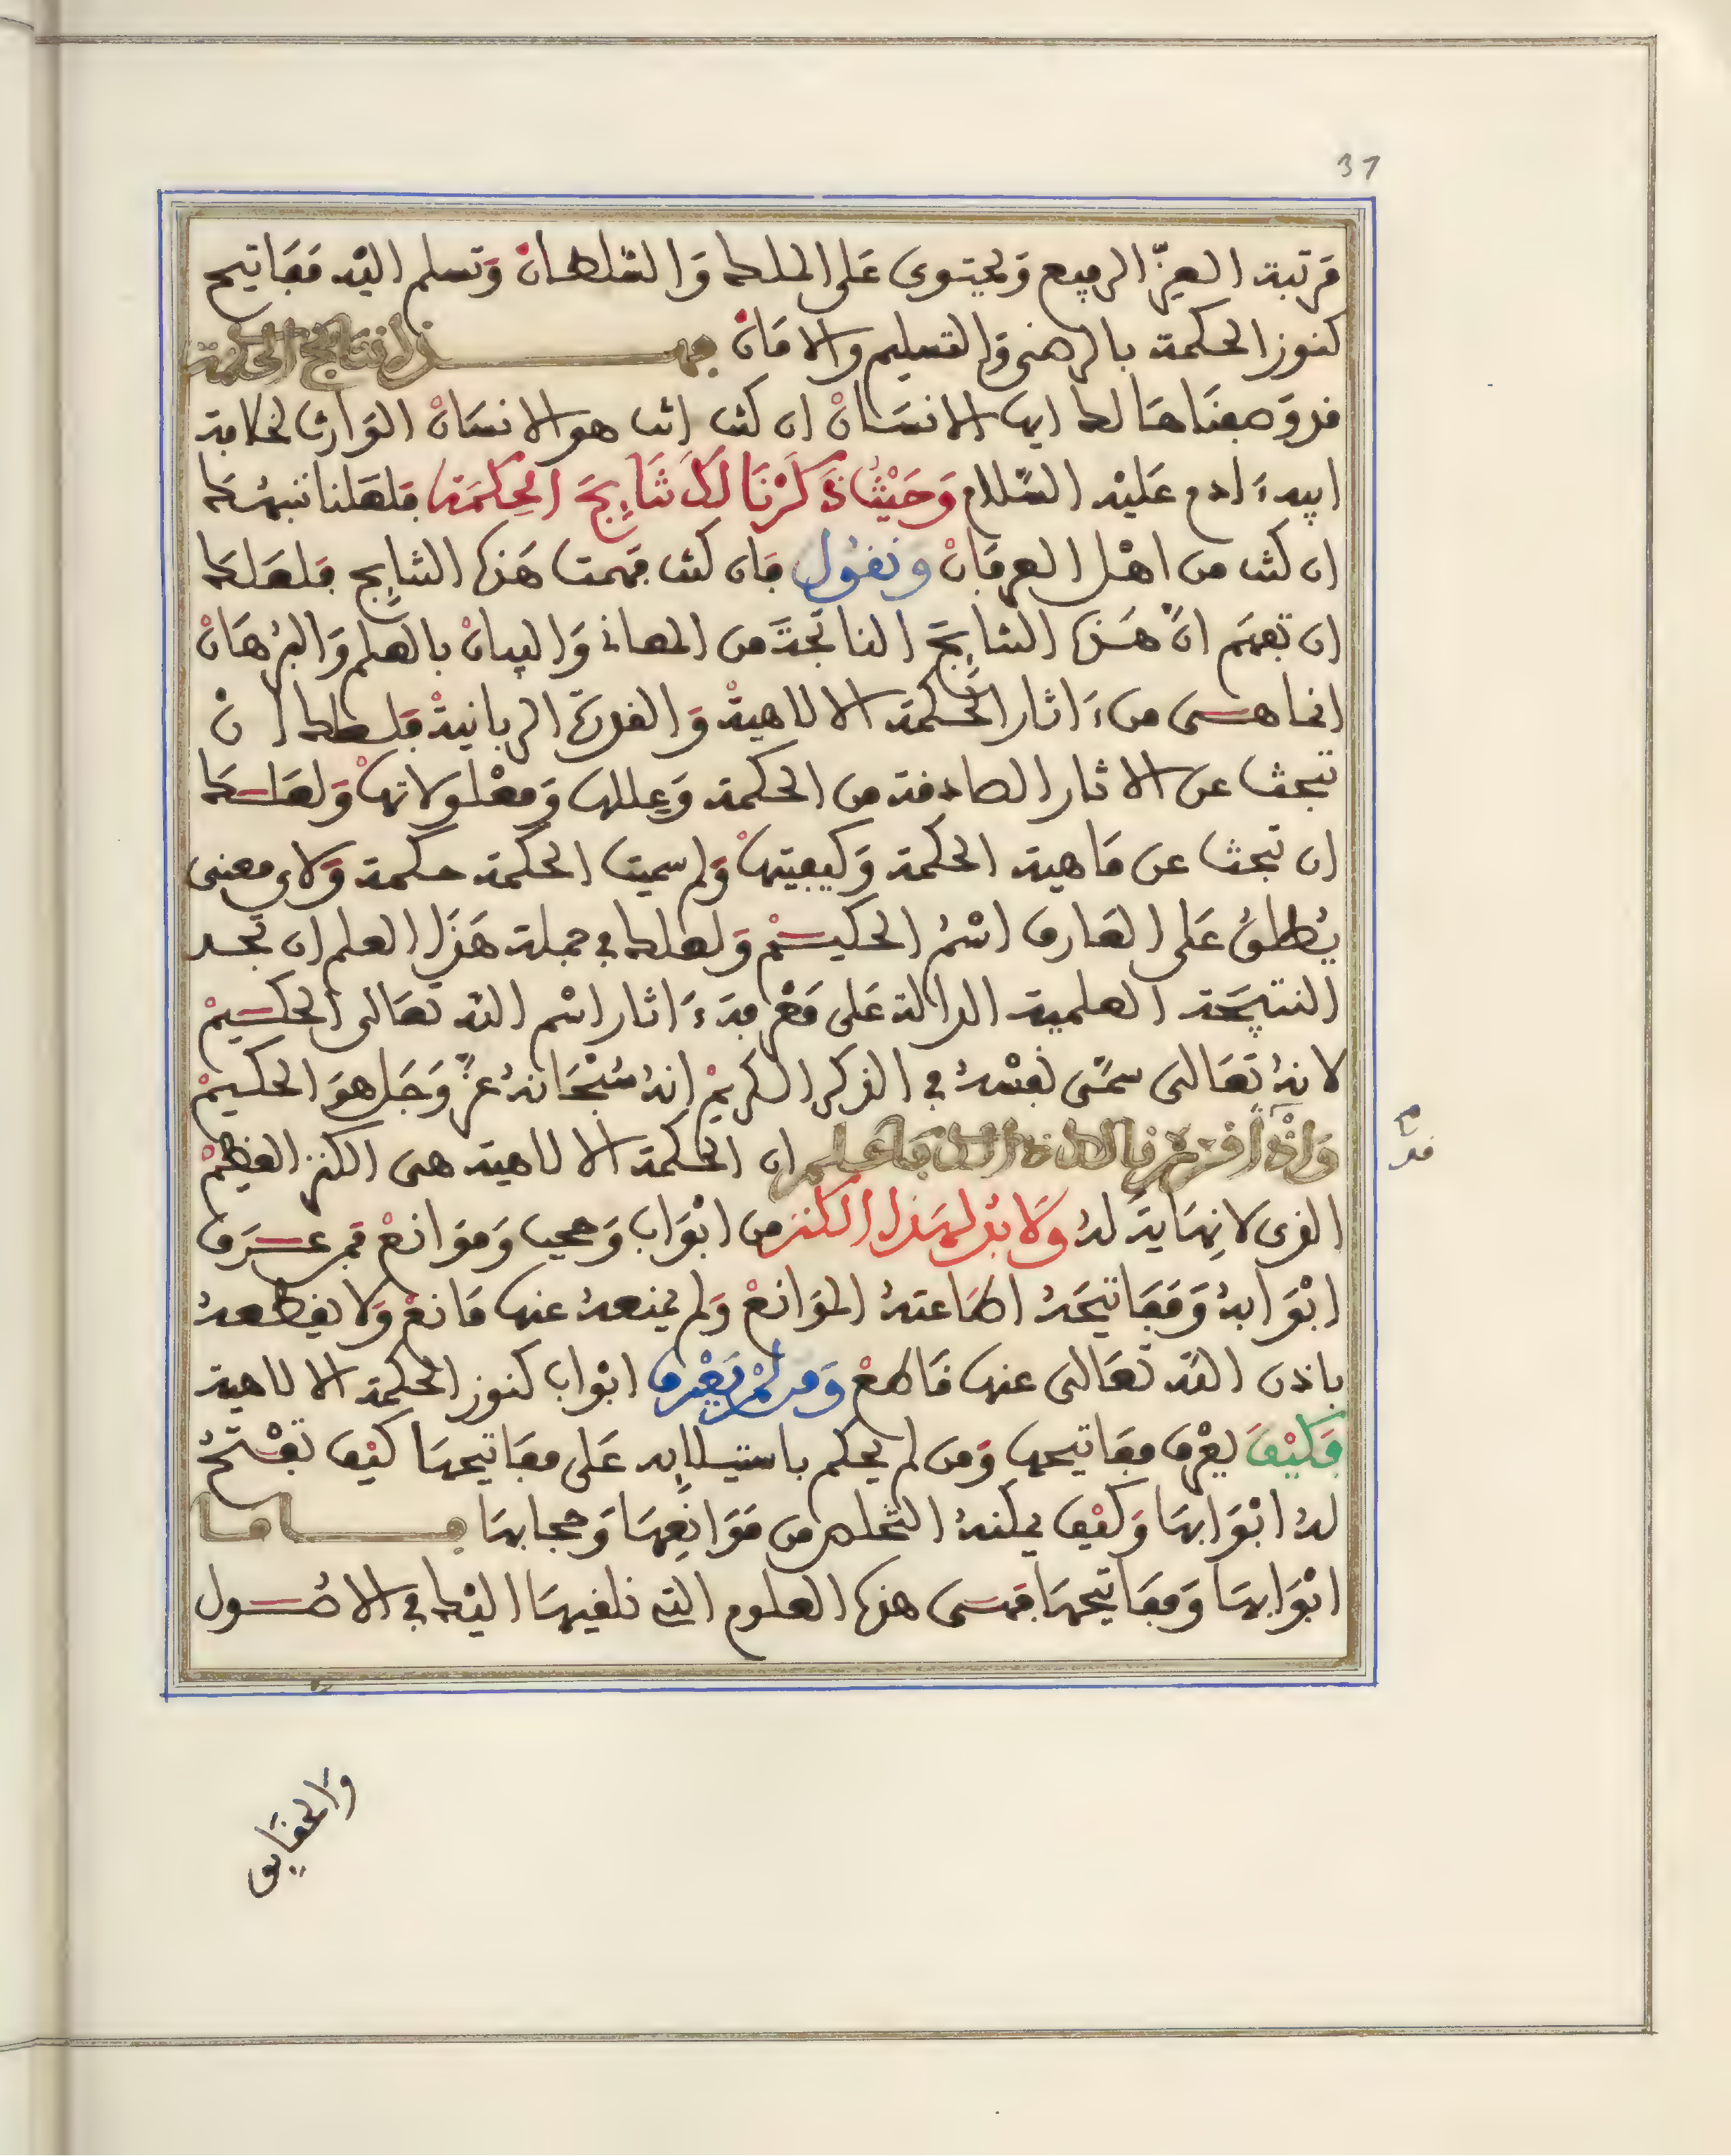 37
مرتبة العزّ الرفيع وَيحتوى عَلى الملك وَالسّلطانْ وَتسلم اليْه مَفَاتيح
كنوز الحكمة بالرضى وَالتسليم والامَانْ فهـــذا نتايج الحكمة
قد وَصفنَاهَا لك ايها الانسَانْ ان كنت انت هو الانسَانْ الوَارث لخلافة
ابيه ءَادم عَليْه السّلام وَحَيْثُ ذَكَرْنَا لَكَ نَتَايِجَ الحِكمَة فلعَلنا ننبهُكَ
ان كنت من اهْل العرفَانْ ونقُول فان كنت فهمت هَذه النتايج فلعَلكَ
ان تفهَم انّ هَذه النتايِجَ الناتجَةَ من المعانى وَالبيانْ بالعلم وَالبُرْهَانْ
انما هى من ءَاثار الحكمة الالاهيةْ وَالقدرَة الربانيةْ فلعلك انْ
تبحث عن الاثار الصادقة من الحكمة وَعِللها وَمعْلولاتهَاْ وَلعَلكَ
ان تبحث عن مَاهية الحكمة وَكيفيتهَاْ وَلم سميت الحكمة حكمة وَلاى معنى
يُطلقُ عَلى العَارف اسْمُ الحكيمْ وَلعلك فى جملة هَذا العلم ان تجد
النتيجَة العلمية الدالة عَلى مَعْرفة ءَاثار اسْم الله تعَالى الحكيمْ
لانهُ تعَالى سمّى نفسَهُ فى الذكر الكريمْ انهُ سُبْحَانهُ عزّ وَجَل هوَ الحكيمْ
وَاذْ قد قرّرنا لك ذالك فاعلم ان الحكمة الالاهية هى الكنز العَظيمْ
قدم
الذى لا نِهَايةَ لهُ وَلا بدّ لهَذا الكنز من ابْوَاب وَحجب وَمَوَانعْ فمَن عَرَف
ابْوَابهُ وَمَفَاتيحَهُ اطَاعتهُ الموَانعْ وَلم يمنعهُ عنها مَانعْ وَلا يقطعهُ
باذن الله تعَالى عنها قَاطعْ وَمن لمْ يَعْرف ابْوَاب كنوز الحكمة الالاهية
فَكيْفَ يعْرف مفَاتيحها وَمن لم يحكم باستيلايه عَلى مفَاتيحهَا كيْف تفْتَحُ
لهُ ابْوَابهَا وَكيْف يمكنهُ التّخلص من مَوَانِعِهَا وَحجابهَا فـــامـا
ابْوَابهَا وَمفَاتيحهَا فهىَ هذه العلوم التى نلقيهَا اليْك فى الاصُول
وَالحقَايِق